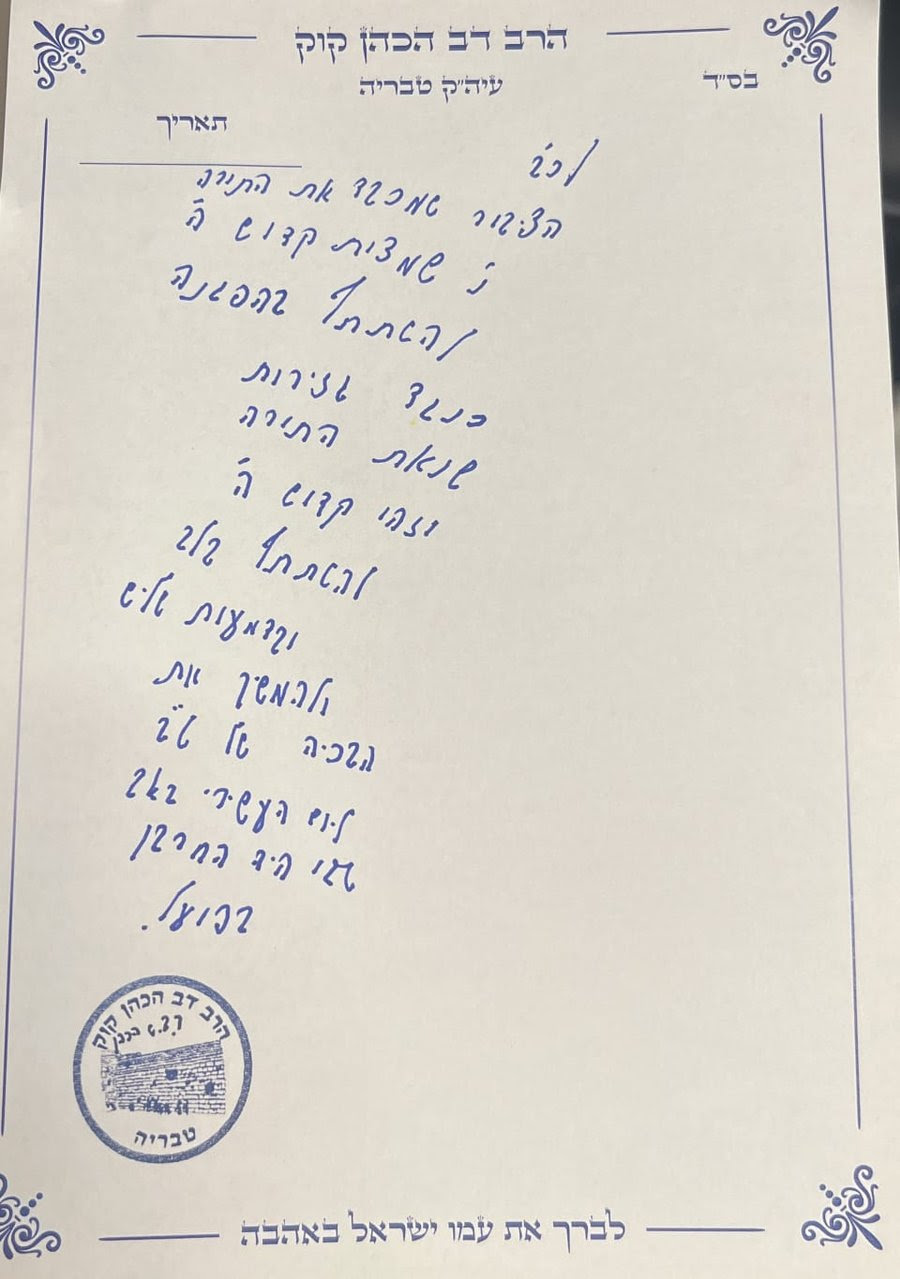 הרב דב הכהן קוק
עיה״ק טבריה
בס״ד
תאריך
לכ'
הציבור שמכבד את התורה
נ' שמצות קדוש ה'
להשתתף בהפגנה
כנגד גזירות
שנאת התורה
וזהו קדוש ה'
להשתתף בלב
ובדמעות שליש
ולהמשיך את
הבכיה של ט"ב
ליום העשירי באב
שבו היה החורבן
בפועל.
הרב דב הכהן קוק
טבריה
לברך את עמו ישראל באהבה